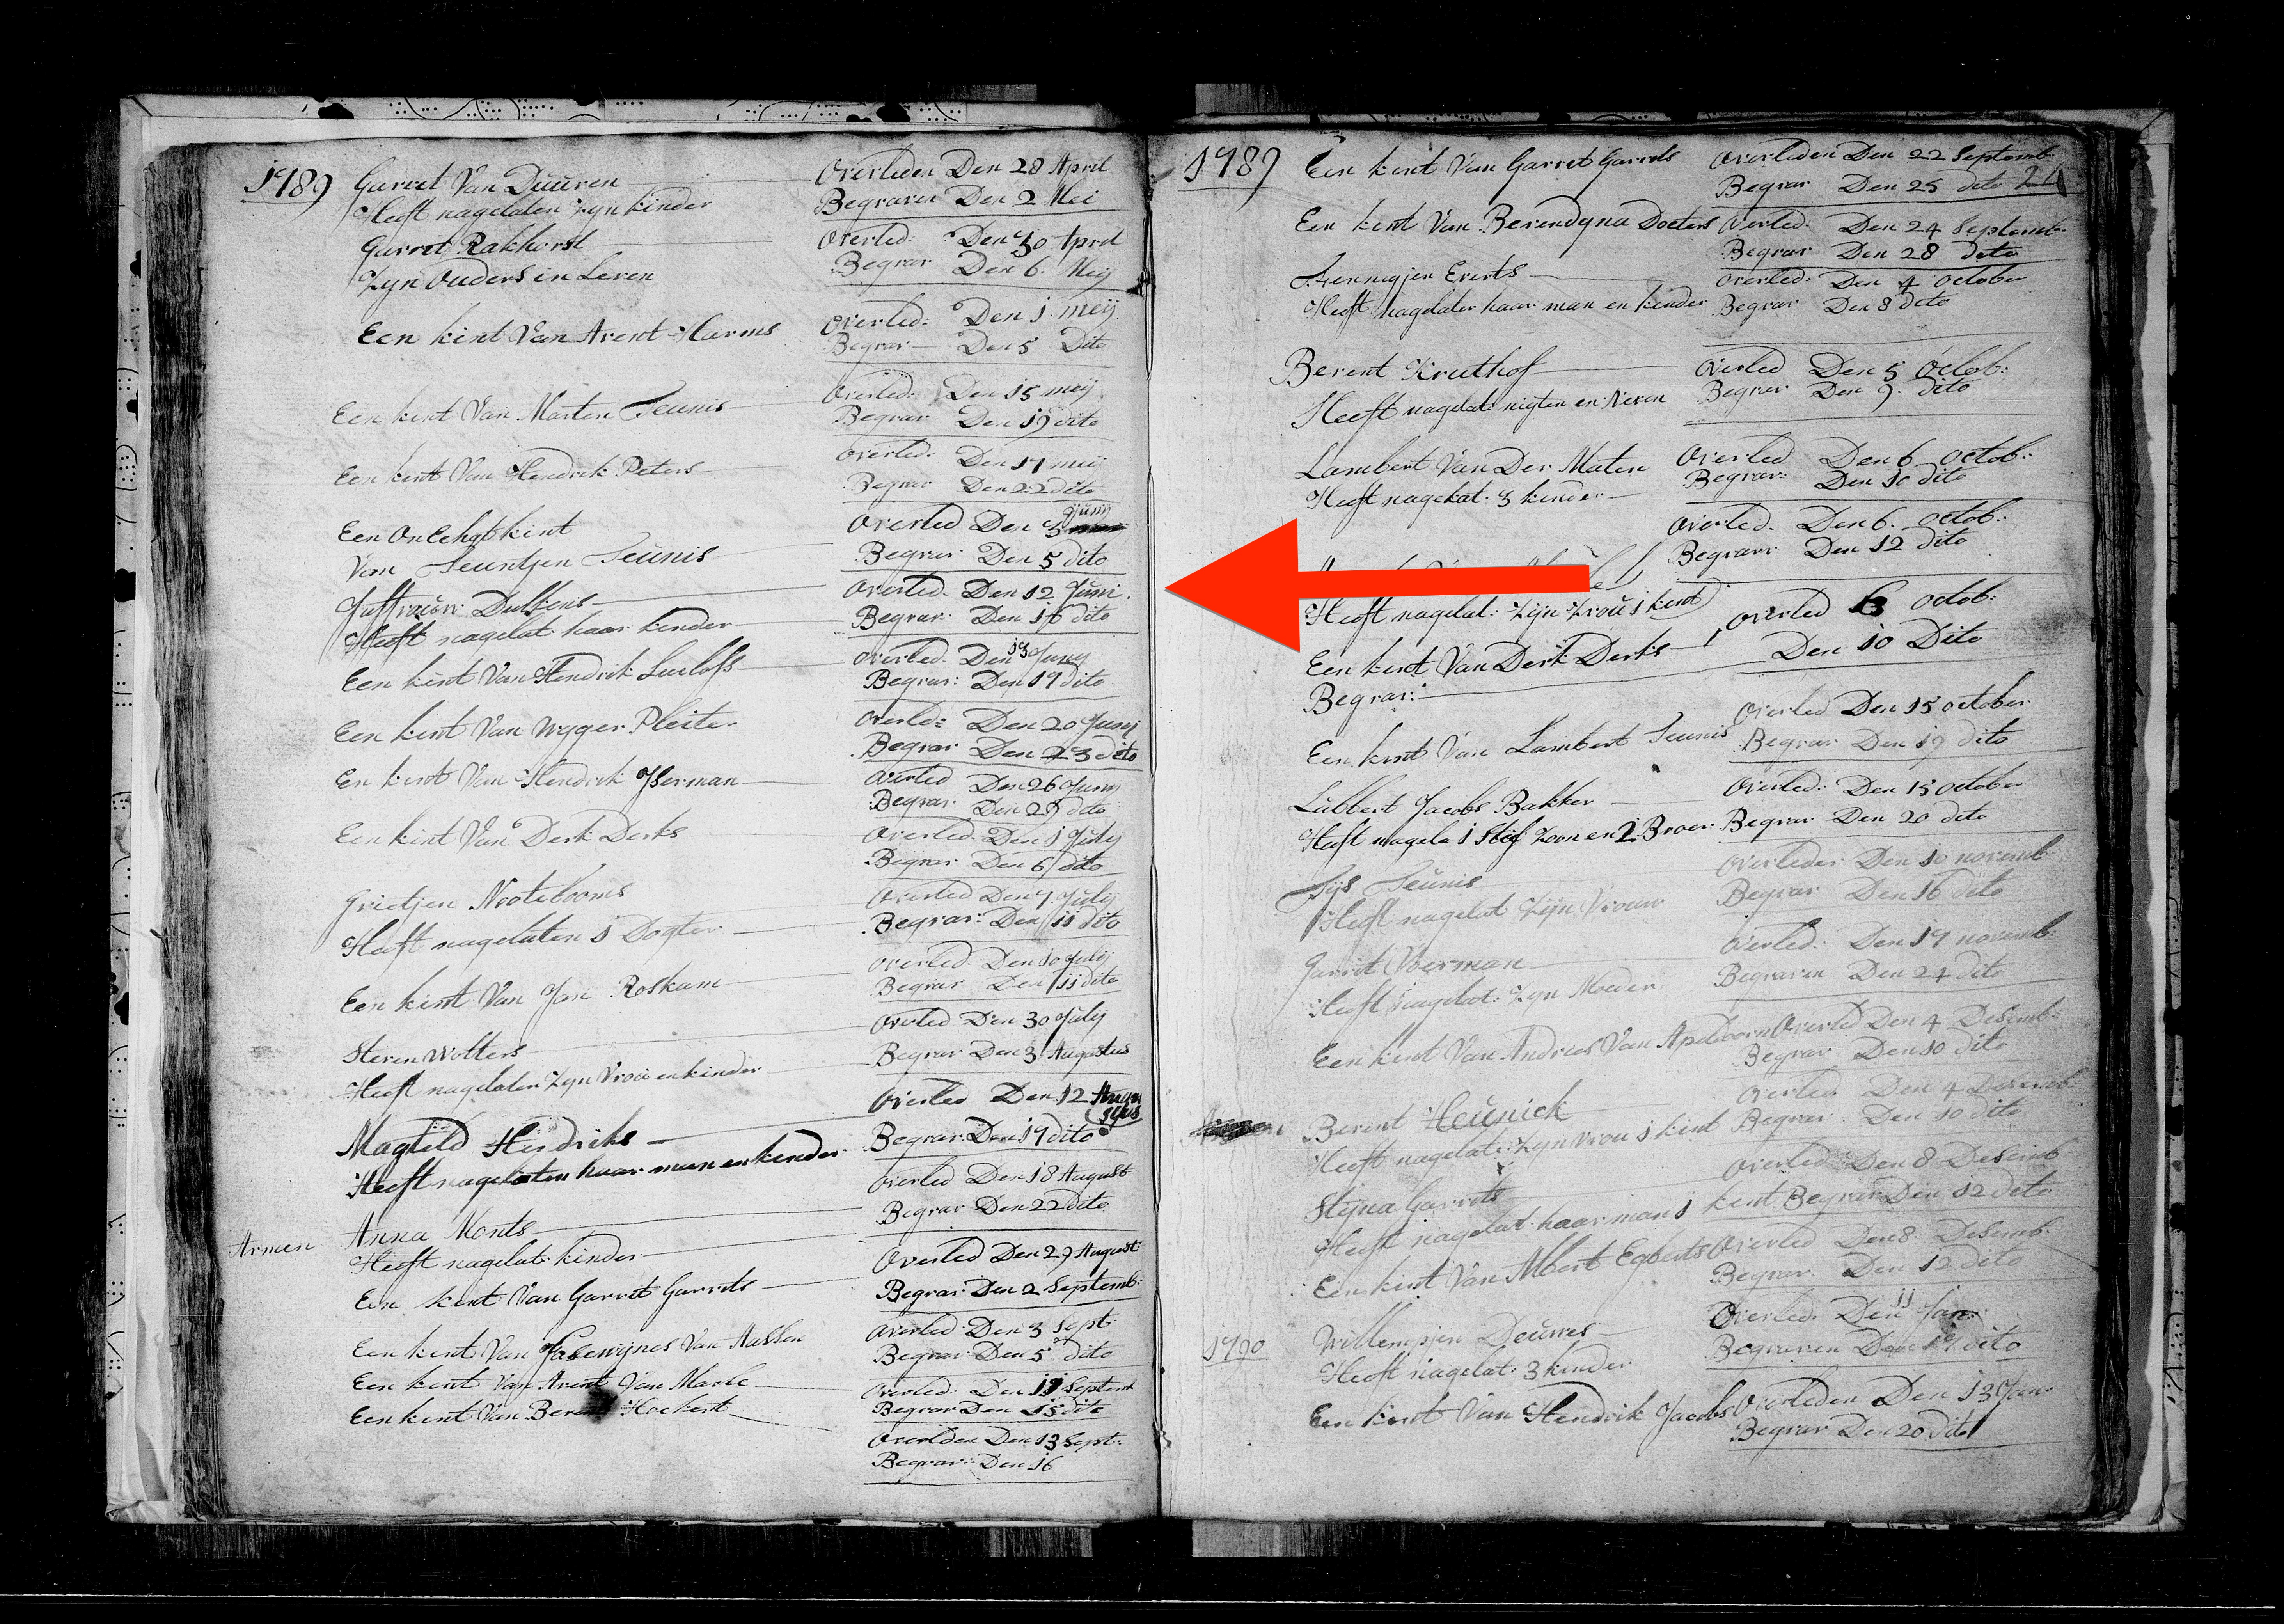 1789 Garret Van Duuren Overleden Den 28 April
Heeft nagelaten Zyn kinder Begraven Den 2 Mei
Garret Rakhorst Overled: Den 30 April
Zyn Ouders in Leven Begrav Den 6 Meij
Een kint Van Arent Harms Overled: Den 1 meij
Begrav Den 5 Dito
Een kint Van Marten Teunis Overled: Den 15 meij
Begrav Den 19 dito
Een kint Van Hendrik Peters Overled: Den 17 meij
Begrav Den 22 dito
Een Onechgt kint Overled Den 3 Junij
Van Teuntjen Teunis Begrav: Den 5 dito
Juffrouw: Overled. Den 12 Juni.
Heeft nagelat haar kinder Begrav: Den 16 dito
Een kint Van Hendrik Luloffs Overled. Den 13 Juny
Begrav: Den 17 dito
Een kint Van Wyger Pleiter Overled: Den 20 Junij
Begrav Den 23 dito
En kint Van Hendrik Overled Den 26 Juny
Begrav Den 29 dito
Een kint Van Derk Derks Overled. Den 1 July
Begrav Den 6 dito
Grietjen Nootebooms Overled Den 7 July
Heeft nagelaten 1 Dogter Begrav: Den 11 dito
Een kint Van Jan Roskam Overled. Den 10 July
Begrav Den 11 dito
Steven Wolters Overled Den 30 July
Heeft nagelaten Zyn Vrou en kinder Begrav Den 3 Augustus
Magteld Hendriks Overled Den 12
Heeft nagelaten haar man en kinder Begrav: Den 17 dito
Overled Den 18 August
Armen Anna Monts Begrav Den 22 dito
Heeft nagelat: kinder Overled Den 29 August
Een kint Van Garret Garrets Begrav Den 2 Septemb:
Een kint Van Van Overled: Den 3 Sept:
Begrav Den 5 dito
Een kint Van Arent Van Marle Overled: Den Septemb
Een kint Van Hoekert Begrav Den 15 dito
Overleden Den 13 Sept:
Begrav: Den 16
1789 Een kint Van Garret Garrets Overleden Den 22 Septemb
Begrav Den 25 dito
Een kint Van Berendyna Docters Overled: Den 24 Septemb.
Begrav Den 28 dito
Hennegjen Everts Overled: Den 4 October
Heeft nagelaten haar man en kinder Begrav Den 8 dito
Berent Kruthof Overled Den 5 Octob:
Heeft nagelat: nigten en Neven Begrav Den 9. dito
Lambert Van Der Maten Overled Den 6 octob:
Heeft nagelat: 3 kinder Begrav: Den 10 dito
Overled. Den 6. octob:
Begrav: Den 12 dito
Heeft nagelat: Zijn Vrou 1 kint
Een kint Van Derk Derks Overled 6 octob:
Begrav: Den 10 Dito
Een kint Van Lambert Teunis Overled Den 15 october
Begrav Den 19 dito
Lubbert Jacobs Bakker Overled: Den 15 october
Heeft nagela 1 Stif Zoon en 2 Broer Begrav Den 20 dito
Tijs Teunis Overleden Den 10 novemb
Heeft nagelat Zijn Vrouw Begrav Den 16 dito
Garrit Voerman Overled: Den 19 novemb:
Heeft nagelat: Zyn Moeder Begraven Den 24 dito
Een kint Van Andries Van Apeldoorn Overled Den 4 Desemb:
Begrav Den 10 dito
Berent Heunick Overled. Den 4 Desemb
Heeft nagelat: Zyn Vrou 1 kint Begrav Den 10 dito
Stijna Garrets Overled Den 8 Desemb
Heeft nagelat: haar man 1 kint Begrav Den 12 dito
Een kint Van Albert Egberts Overled Den 8 Desemb.
Begrav Den 12 dito
1790 Willempjen Deurres Overled: Den 11 Jan:
Heeft nagelat: 3 kinder Begraven Den 17 dito
Een kint Van Hendrik Jacobs Overleden Den 13 Jan:
Begrav Den 20 dito